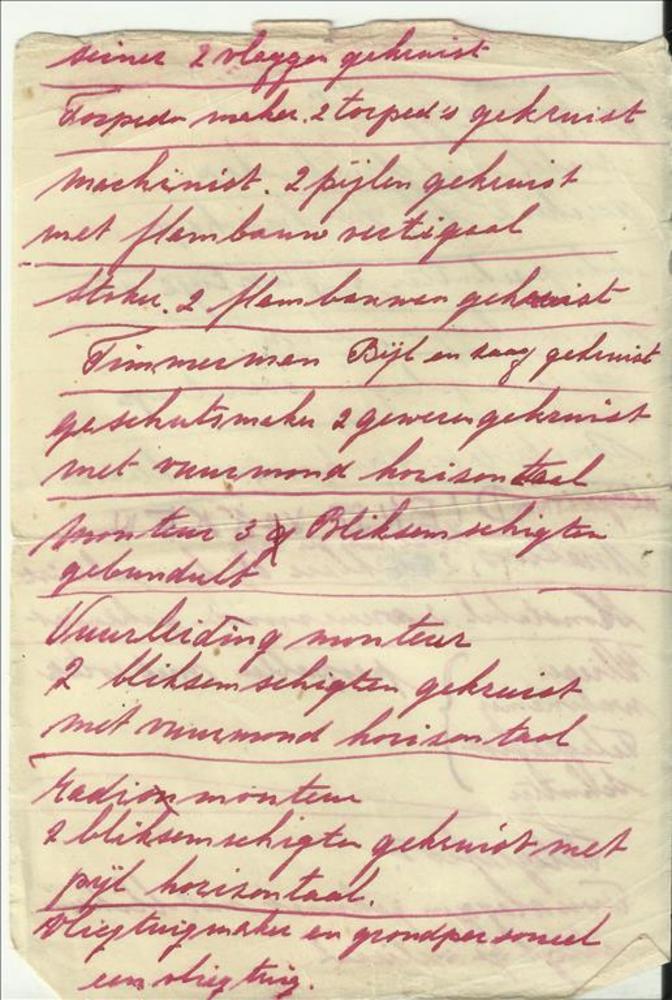 seiner 2 vlaggen gekruist
Torpedo maker. 2 torpedo's gekruist
machinist. 2 pijlen gekruist
met flambouw vertigaal
stoker. 2 flambouwen gekruist
Timmerman Bijl en zaag gekruist
geschutsmaker 2 geweren gekruist
met vuurmond horizontaal
monteur 3 Bliksemschigten
gebundelt
Vuurleiding monteur
2 bliksemschigten gekruist
met vuurmond horizontaal
Radio monteur
2 bliksemschigten gekruist met
pijl horizontaal.
vliegtuigmaker en grondpersoneel
een vliegtuig.